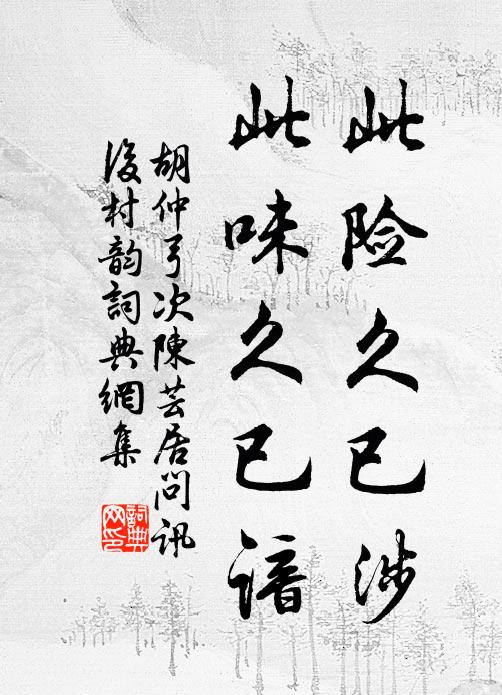 此险久已涉
此味久已谙
胡仲弓次陳芸居问讯
後村韵詞典網集
詞典网印